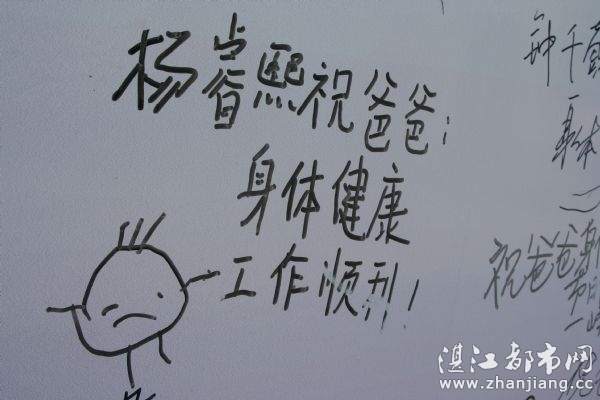 杨睿熙祝爸爸:
身体健康
工作顺利!
身体
祝爸爸身
湛江都市网
www.zhanjiang.cc